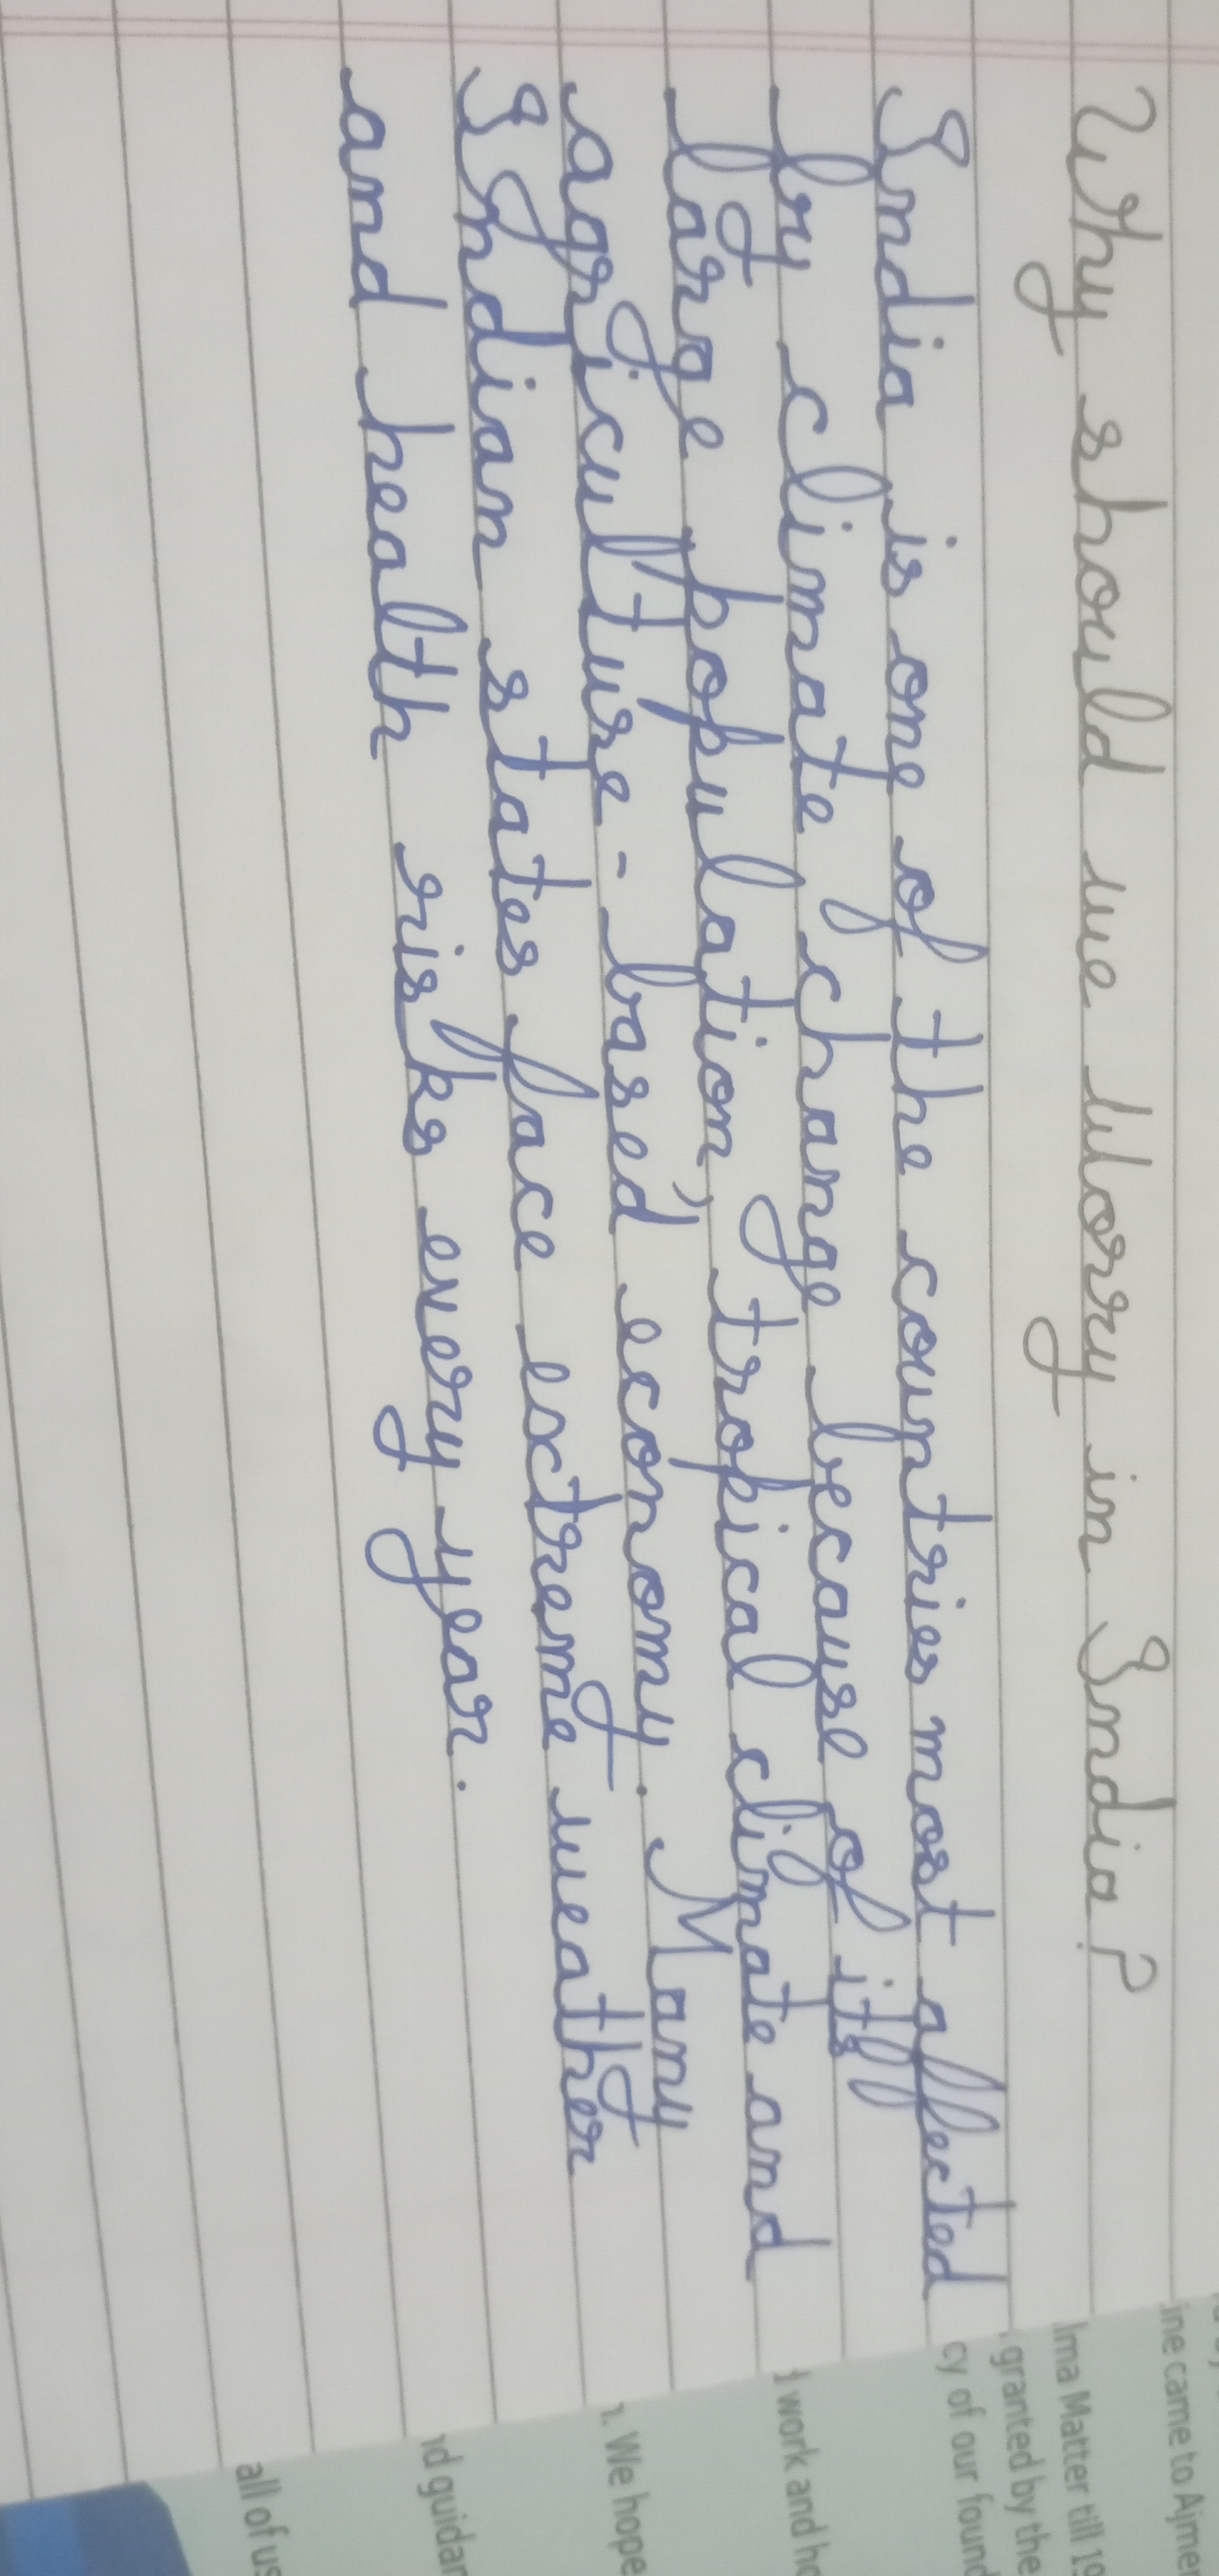 Why should we worry in India?
India is one of the countries most affected
by climate change because of its
large population, tropical climate and
agriculture-based economy. Many
Indian states face extreme weather
and health risks every year.
ine came to Ajmer
Matter till
granted by the
cy of our found
work and
. We hope
guidan
all of us